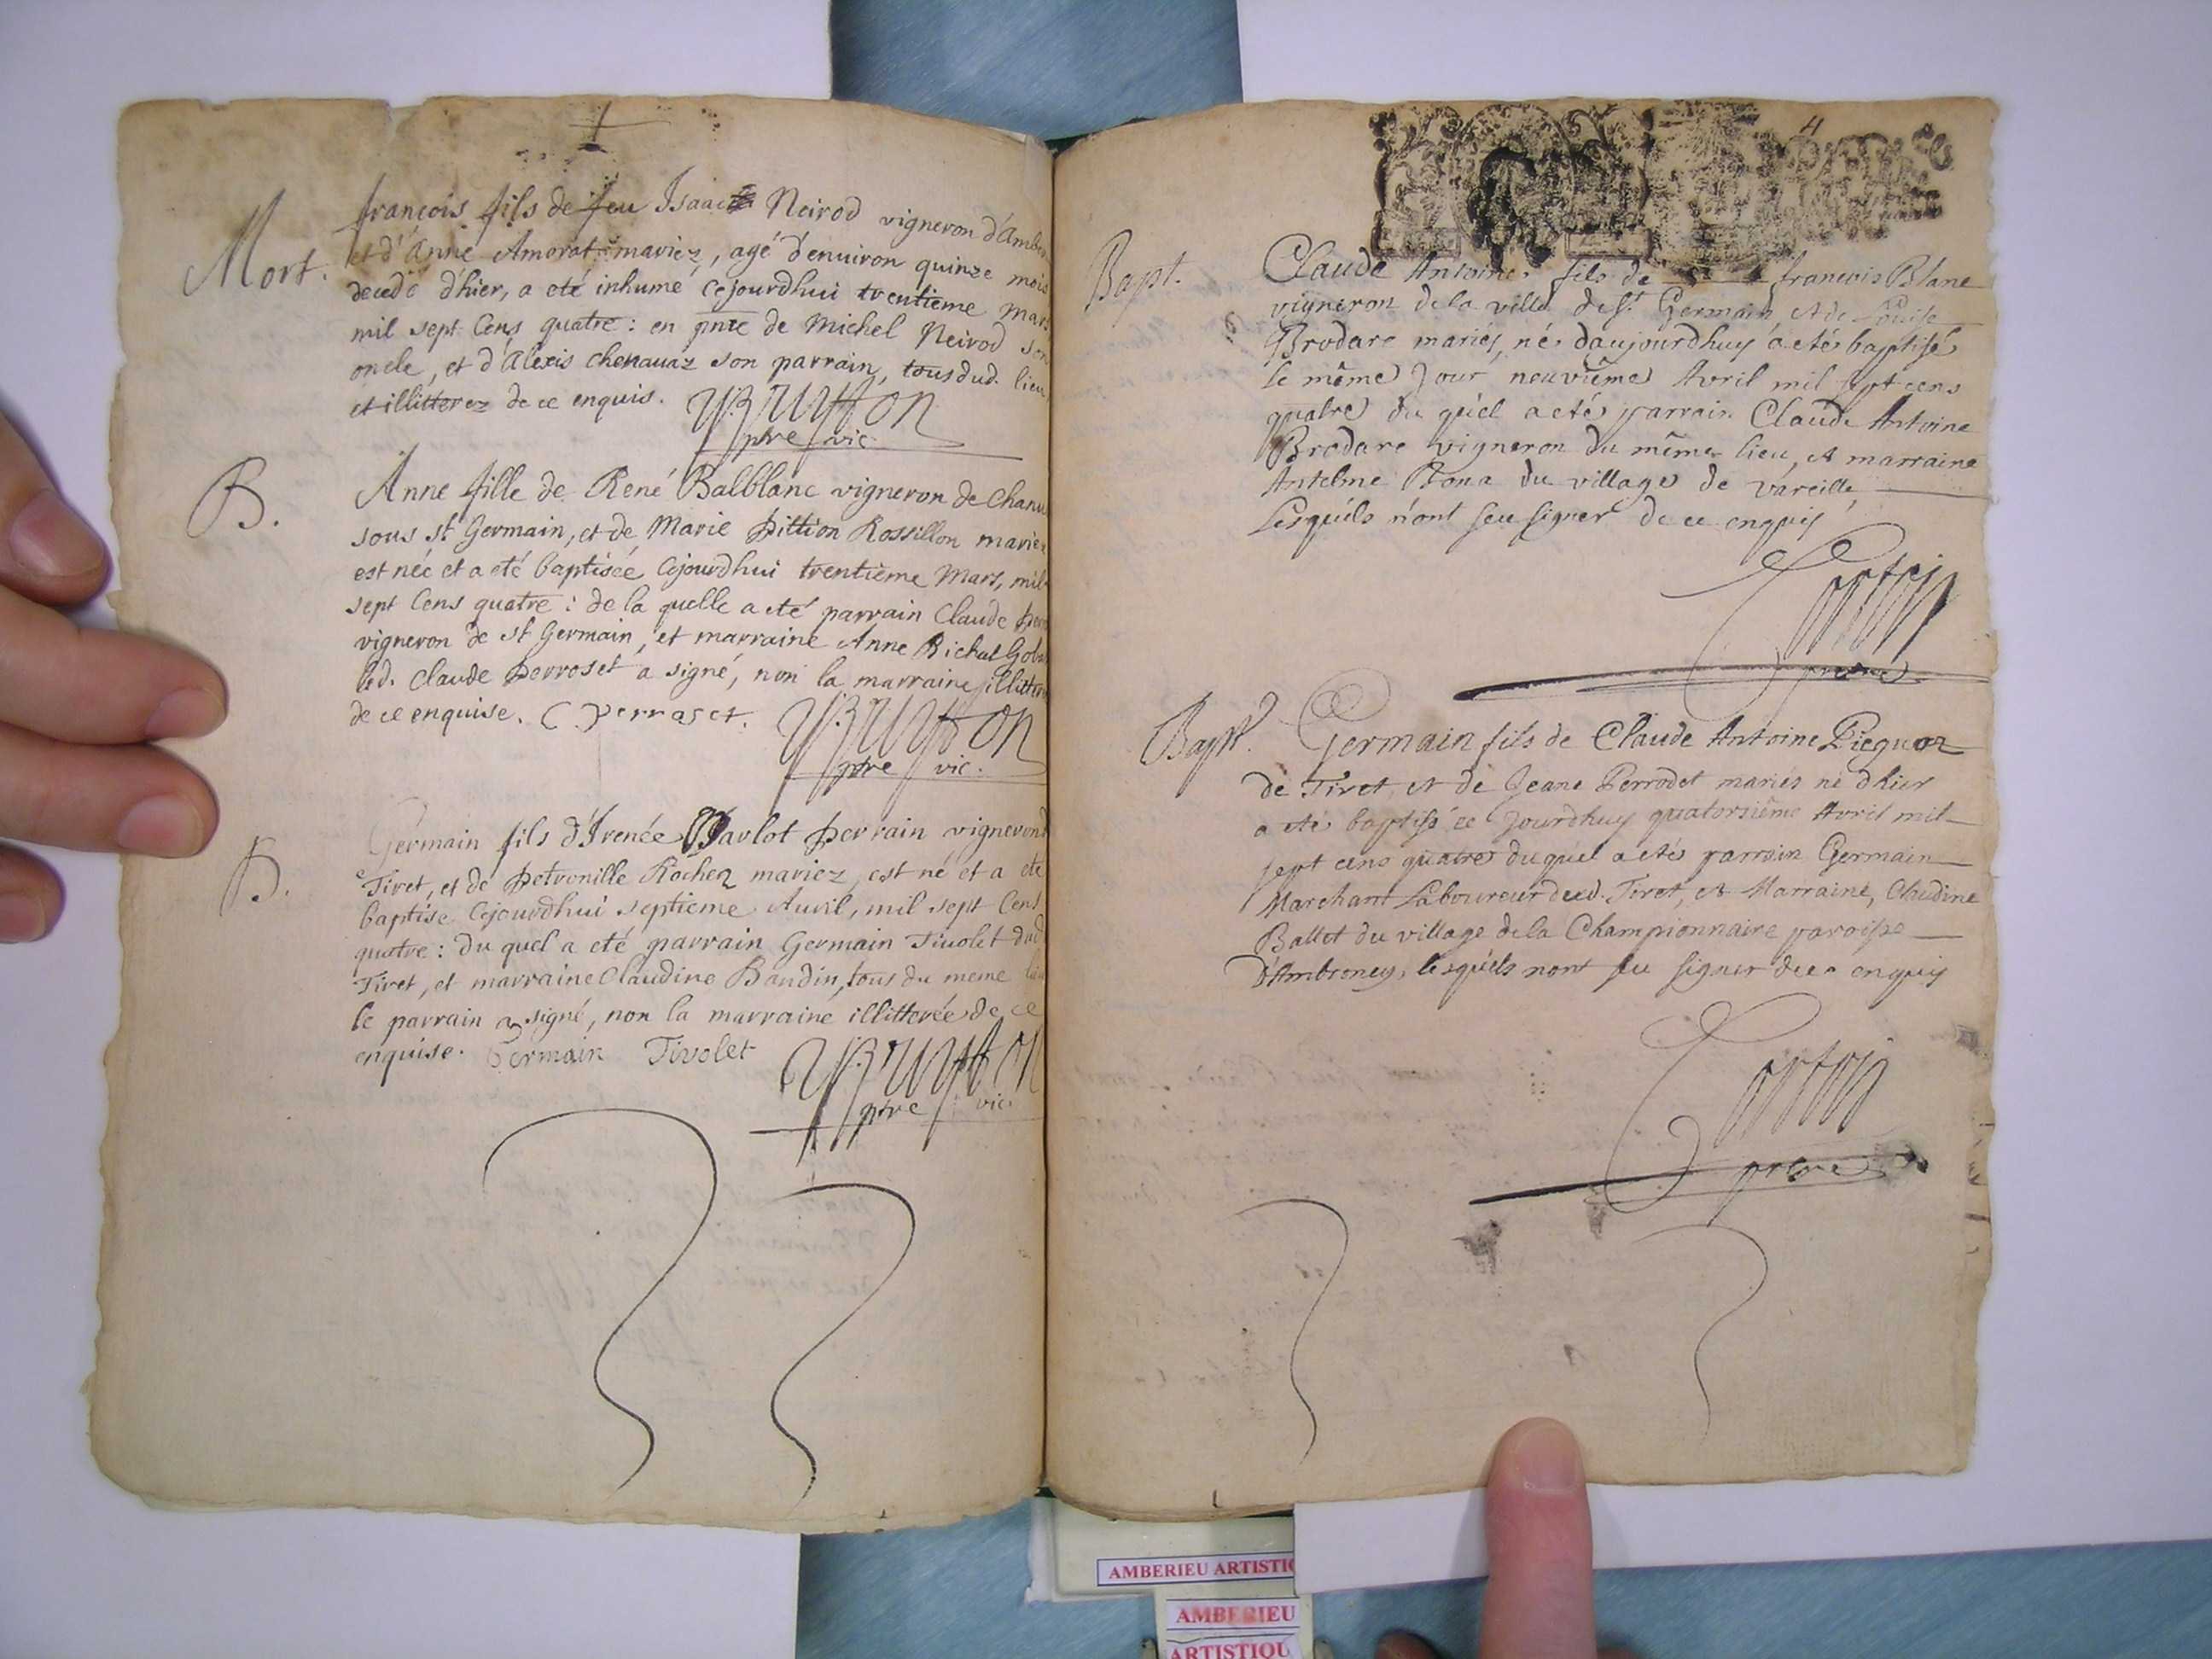 Mort.
françois fils de feu Isaac Neirod vigneron d'Ambe
et d'Anne Amorat mariez, agé d'enuiron quinze mois
decedé d'hier, a eté inhumé cejourdhui trentieme Mars
mil sept Cens quatre : en pnce de Michel Neirod son
oncle, et d'Alexis chenauaz son parrain, tous dud. lieu
et illitterez de ce enquis.
pbre vic.
B.
Anne fille de René Balblanc vigneron de Chanu
sous st Germain, et de Marie pittion Rossillon mariez
est née et a eté baptisée cejourdhui trentième Mars, mil
sept Cens quatre : de la quelle a eté parrain Claude per
vigneron de st Germain, et marraine Anne Bichat
led. Claude perroset a signé, non la marraine illitter
de ce enquise. C perraset.
pbre vic.
B.
Germain fils d'Irenée Parlot perrain vigneron d
Tiret, et de petronille Rochez mariez, est né et a eté
baptisé cejourdhui septieme Auril, mil sept Cens
quatre : du quel a eté parrain Germain Tiuolet dud
Tiret, et marraine Claudine Baudin, tous du meme lieu
le parrain a signé, non la marraine illitterée de ce
enquise. Germain Tivolet
pbre vic.
4
Bapt.
Claude Antoine fils de francois Blanc
vigneron de la ville de St. Germain et de Louise
Brodare mariés, né daujourdhuy a eté baptisé
le même Jour neuvième Avril mil sept cens
quatre du quel a eté parrain Claude Antoine
Brodare vigneron du même lieu, et marraine
Antelme Bona du village de vareille,
Lesquels n'ont sceu signer de ce enquis
prebre
Bapt.
Germain fils de Claude Antoine Piequoz
de Tiret, et de Jeane Perrodet mariés né d'hier
a eté baptisé ce Jourdhuy quatorsième Avril mil
sept cens quatre duquel a eté parrain Germain
Marchant Laboureur dud. Tiret, et Marraine, Claudine
Ballet du village de la Championnaire paroisse
D'Ambroney, lesquels nont su signer de ce enquis
prebre
AMBERIEU ARTISTIQ
AMBERIEU
ARTISTIQU